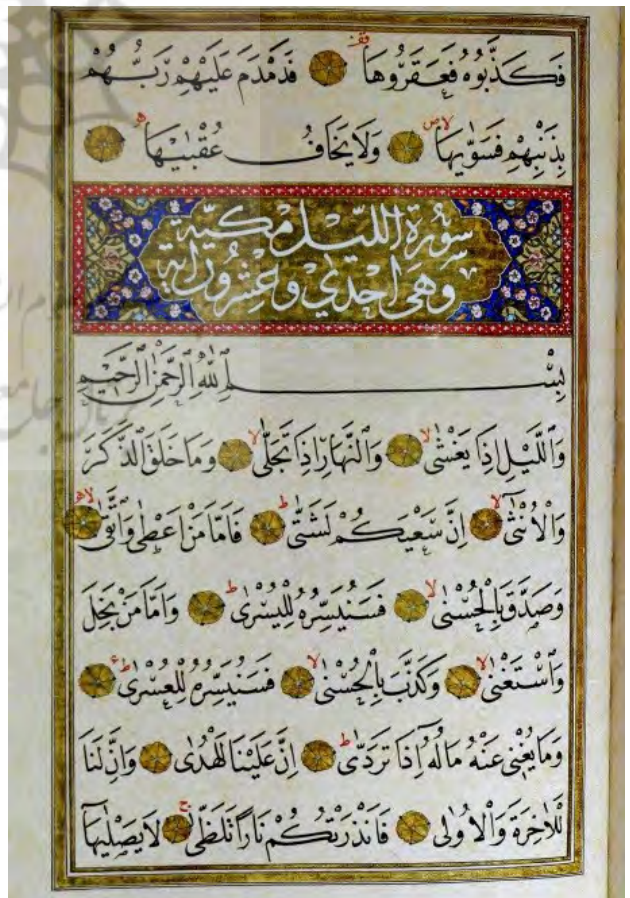 فَكَذَّبُوهُ فَعَقَرُوهَا فَدَمْدَمَ عَلَيْهِمْ رَبُّهُمْ
بِذَنْبِهِمْ فَسَوّٰيهَا وَلَا يَخَافُ عُقْبٰيهَا
سورة الليل مكية
وهى احدى وعشرون اية
بِسْمِ اللّٰهِ الرَّحْمٰنِ الرَّحِيمِ
وَالَّيْلِ اِذَا يَغْشٰى وَالنَّهَارِ اِذَا تَجَلّٰى وَمَا خَلَقَ الذَّكَرَ
وَالْاُنْثٰى اِنَّ سَعْيَكُمْ لَشَتّٰى فَاَمَّا مَنْ اَعْطٰى وَاتَّقٰى
وَصَدَّقَ بِالْحُسْنٰى فَسَنُيَسِّرُهُ لِلْيُسْرٰى وَاَمَّا مَنْ بَخِلَ
وَاسْتَغْنٰى وَكَذَّبَ بِالْحُسْنٰى فَسَنُيَسِّرُهُ لِلْعُسْرٰى
وَمَا يُغْنِى عَنْهُ مَالُهُ اِذَا تَرَدّٰى اِنَّ عَلَيْنَا لَلْهُدٰى وَاِنَّ لَنَا
لَلْاٰخِرَةَ وَالْاُولٰى فَاَنْذَرْتُكُمْ نَارًا تَلَظّٰى لَا يَصْلٰيهَا